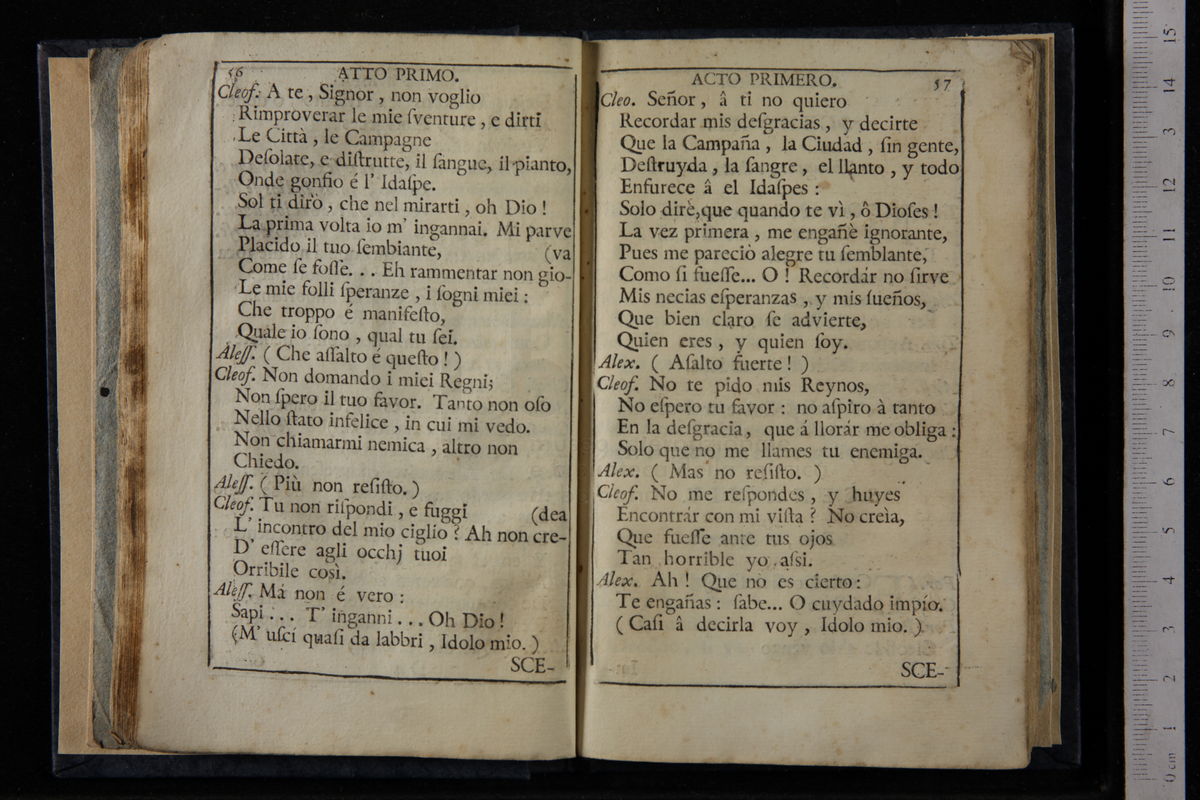 56 ATTO PRIMO.
Cleof. A te, Signor, non voglio
Rimproverar le mie ſventure, e dirti
Le Città, le Campagne
Deſolate, e diſtrutte, il ſangue, il pianto,
Onde gonfio é l' Idaſpe.
Sol ti dirò, che nel mirarti, oh Dio!
La prima volta io m' ingannai. Mi parve
Placido il tuo ſembiante, (va
Come ſe foſſe... Eh rammentar non gio-
Le mie folli ſperanze, i ſogni miei:
Che troppo é manifeſto,
Quale io ſono, qual tu ſei.
Aleſſ. (Che aſſalto é queſto!)
Cleof. Non domando i miei Regni;
Non ſpero il tuo favor. Tanto non oſo
Nello ſtato infelice, in cui mi vedo.
Non chiamarmi nemica, altro non
Chiedo.
Aleſſ. (Più non reſiſto.)
Cleof. Tu non riſpondi, e fuggi (dea
L' incontro del mio ciglio? Ah non cre-
D' eſſere agli occhj tuoi
Orribile così.
Aleſſ. Ma non é vero:
Sapi... T' inganni... Oh Dio!
(M' uſcì quaſi da labbri, Idolo mio.)
SCE-
ACTO PRIMERO. 57
Cleo. Señor, â ti no quiero
Recordar mis deſgracias, y decirte
Que la Campaña, la Ciudad, ſin gente,
Deſtruyda, la ſangre, el llanto, y todo
Enfurece â el Idaſpes:
Solo dirè, que quando te vì, ô Dioſes!
La vez primera, me engañè ignorante,
Pues me pareciò alegre tu ſemblante,
Como ſi fueſſe... O! Recordár no ſirve
Mis necias eſperanzas, y mis ſueños,
Que bien claro ſe advierte,
Quien eres, y quien ſoy.
Alex. (Aſalto fuerte!)
Cleof. No te pido mis Reynos,
No eſpero tu favor: no aſpiro à tanto
En la deſgracia, que á llorár me obliga:
Solo que no me llames tu enemiga.
Alex. (Mas no reſiſto.)
Cleof. No me reſpondes, y huyes
Encontrár con mi viſta? No creìa,
Que fueſſe ante tus ojos
Tan horrible yo aſsi.
Alex. Ah! Que no es cierto:
Te engañas: ſabe... O cuydado impío.
(Caſi â decirla voy, Idolo mio.)
SCE-
0 cm 1 2 3 4 5 6 7 8 9 10 11 12 13 14 15